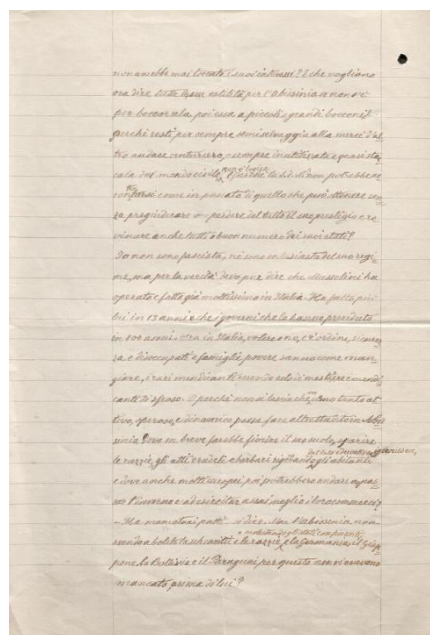 non avrebbe mai toccato i suoi interessi? E che vogliono
ora dire tutte queste ostilità per l'Abissinia se non è
per boccarsela, poi essa a piccoli o grandi bocconi?
perchè resti per sempre semiselvaggia alla mercè d'al
tro audace venturiero, o sempre inutilizzata e quasi sta
del mondo civile, o perchè la Lid. non potrebbe
come in penato di quello che può ottenere sen
za pregiudicare o perdere del tutto il suo prestigio e ro
vinare anche tutti o buon numero dei suoi stati?
Io non sono fascista, nè sono entusiasta del suo regi
me, ma per la verità devo pur dire che Mussolini ha
operato e fatto già moltissimo in Italia. Ha fatto più
lui in 13 anni che i governi che lo hanno preceduto
in 100 anni. Ora in Italia, volere o no, c'è ordine, sicurez
za e disoccupati e famiglie povere sanno come man
giare, i rari mendicanti essendo solo di mestiere e mendi
canti di spasso. O perchè non si lascia che uomo tanto at
tivo, operoso, e dinamico possa fare altrettanto in Abis
sinia? Dove in breve farebbe fiorire il suo suolo, sparire
le razzie, gli atti crudeli e barbari gli abitanti
e dove anche molti europei poi potrebbero andare a pas
sar l'inverno e ad esercitar assai meglio il loro commercio?
- Ha mancato ai patti - si dice. Ma l'Abissinia non
avendo abolito la schiavitù e le razzie, e la Germania, il Giap
pone, la Bolivia e il Paraguai per questo non vi avevano
mancato, prima di lui?